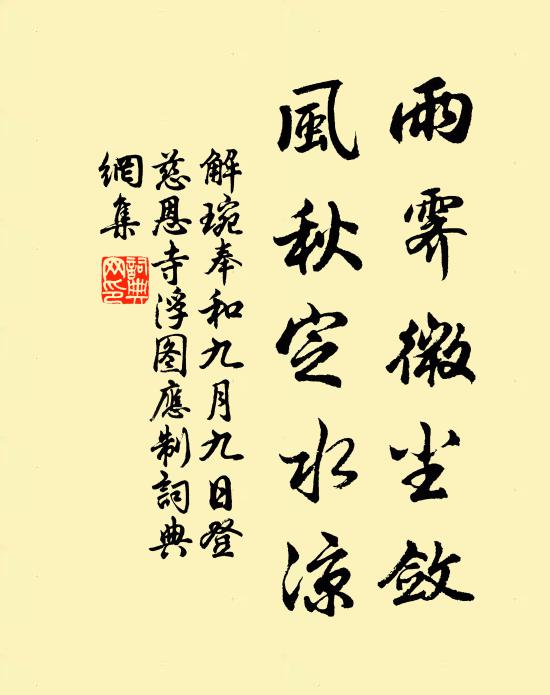 雨霽微尘斂
風秋定水凉
解琬奉和九月九日登
慈恩寺浮图應制詞典
網集
詞典网印